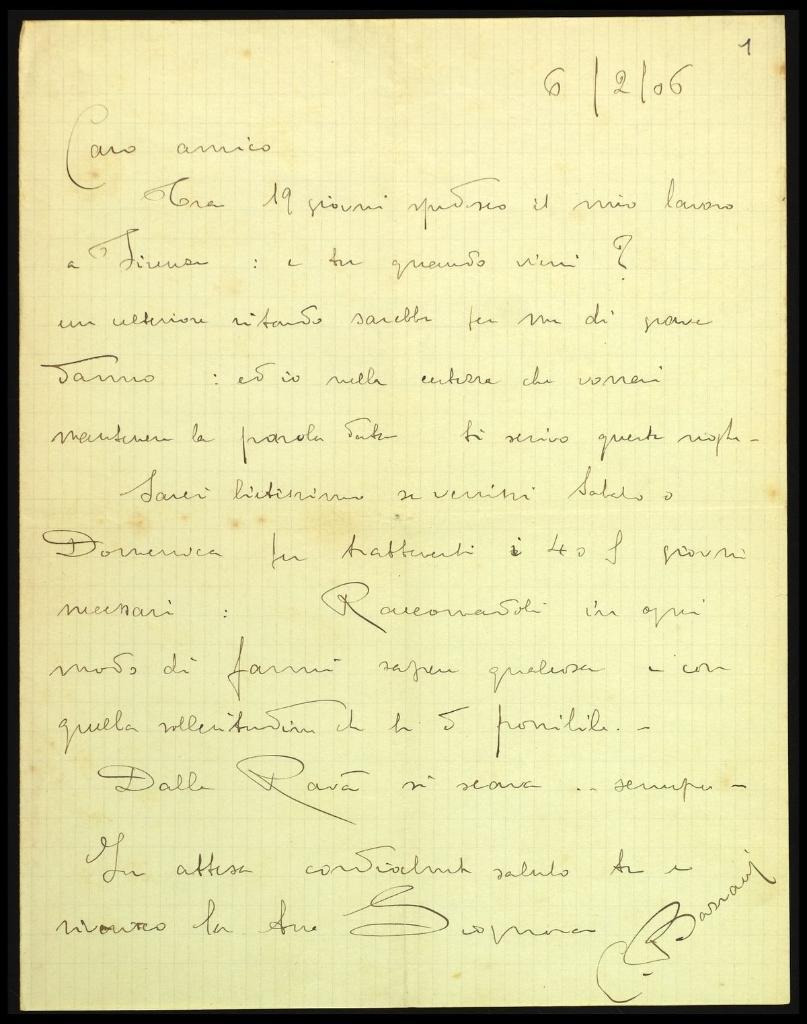 1
6/2/06
Caro amico
Tra 19 giorni spedisco il mio lavoro
a Firenze : e tu quando vieni ?
un ulteriore ritardo sarebbe per me di grave
danno : ed io nella certezza che vorrai
mantenere la parola data ti scrivo queste righe -
Sarei lietissimo se venissi Sabato o
Domenica per trattenerti i 4 o 5 giorni
necessari : Raccomandoti in ogni
modo di farmi sapere qualcosa e con
quella sollecitudine che ti è possibile. -
Dalla Ravà si scava .. sempre -
In attesa cordialmente saluto te e
riverisco la tua Signora
C. Bassani